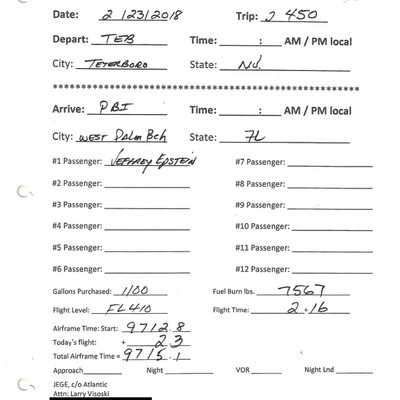 Date: 2/23/2018 Trip: J 450
Depart: TEB Time: : AM / PM local
City: TETERBORO State: NJ.
****************************************************
Arrive: PBI Time: : AM / PM local
City: WEST PALM Bch State: FL
#1 Passenger: JEFFREY EPSTEIN #7 Passenger:
#2 Passenger: #8 Passenger:
#3 Passenger: #9 Passenger:
#4 Passenger: #10 Passenger:
#5 Passenger: #11 Passenger:
#6 Passenger: #12 Passenger:
Gallons Purchased: 1100 Fuel Burn lbs. 7567
Flight Level: FL410 Flight Time: 2.16
Airframe Time: Start: 9712.8
Today's flight: + 2.3
Total Airframe Time = 9715.1
Approach Night VOR Night Lnd
JEGE, c/o Atlantic
Attn: Larry Visoski